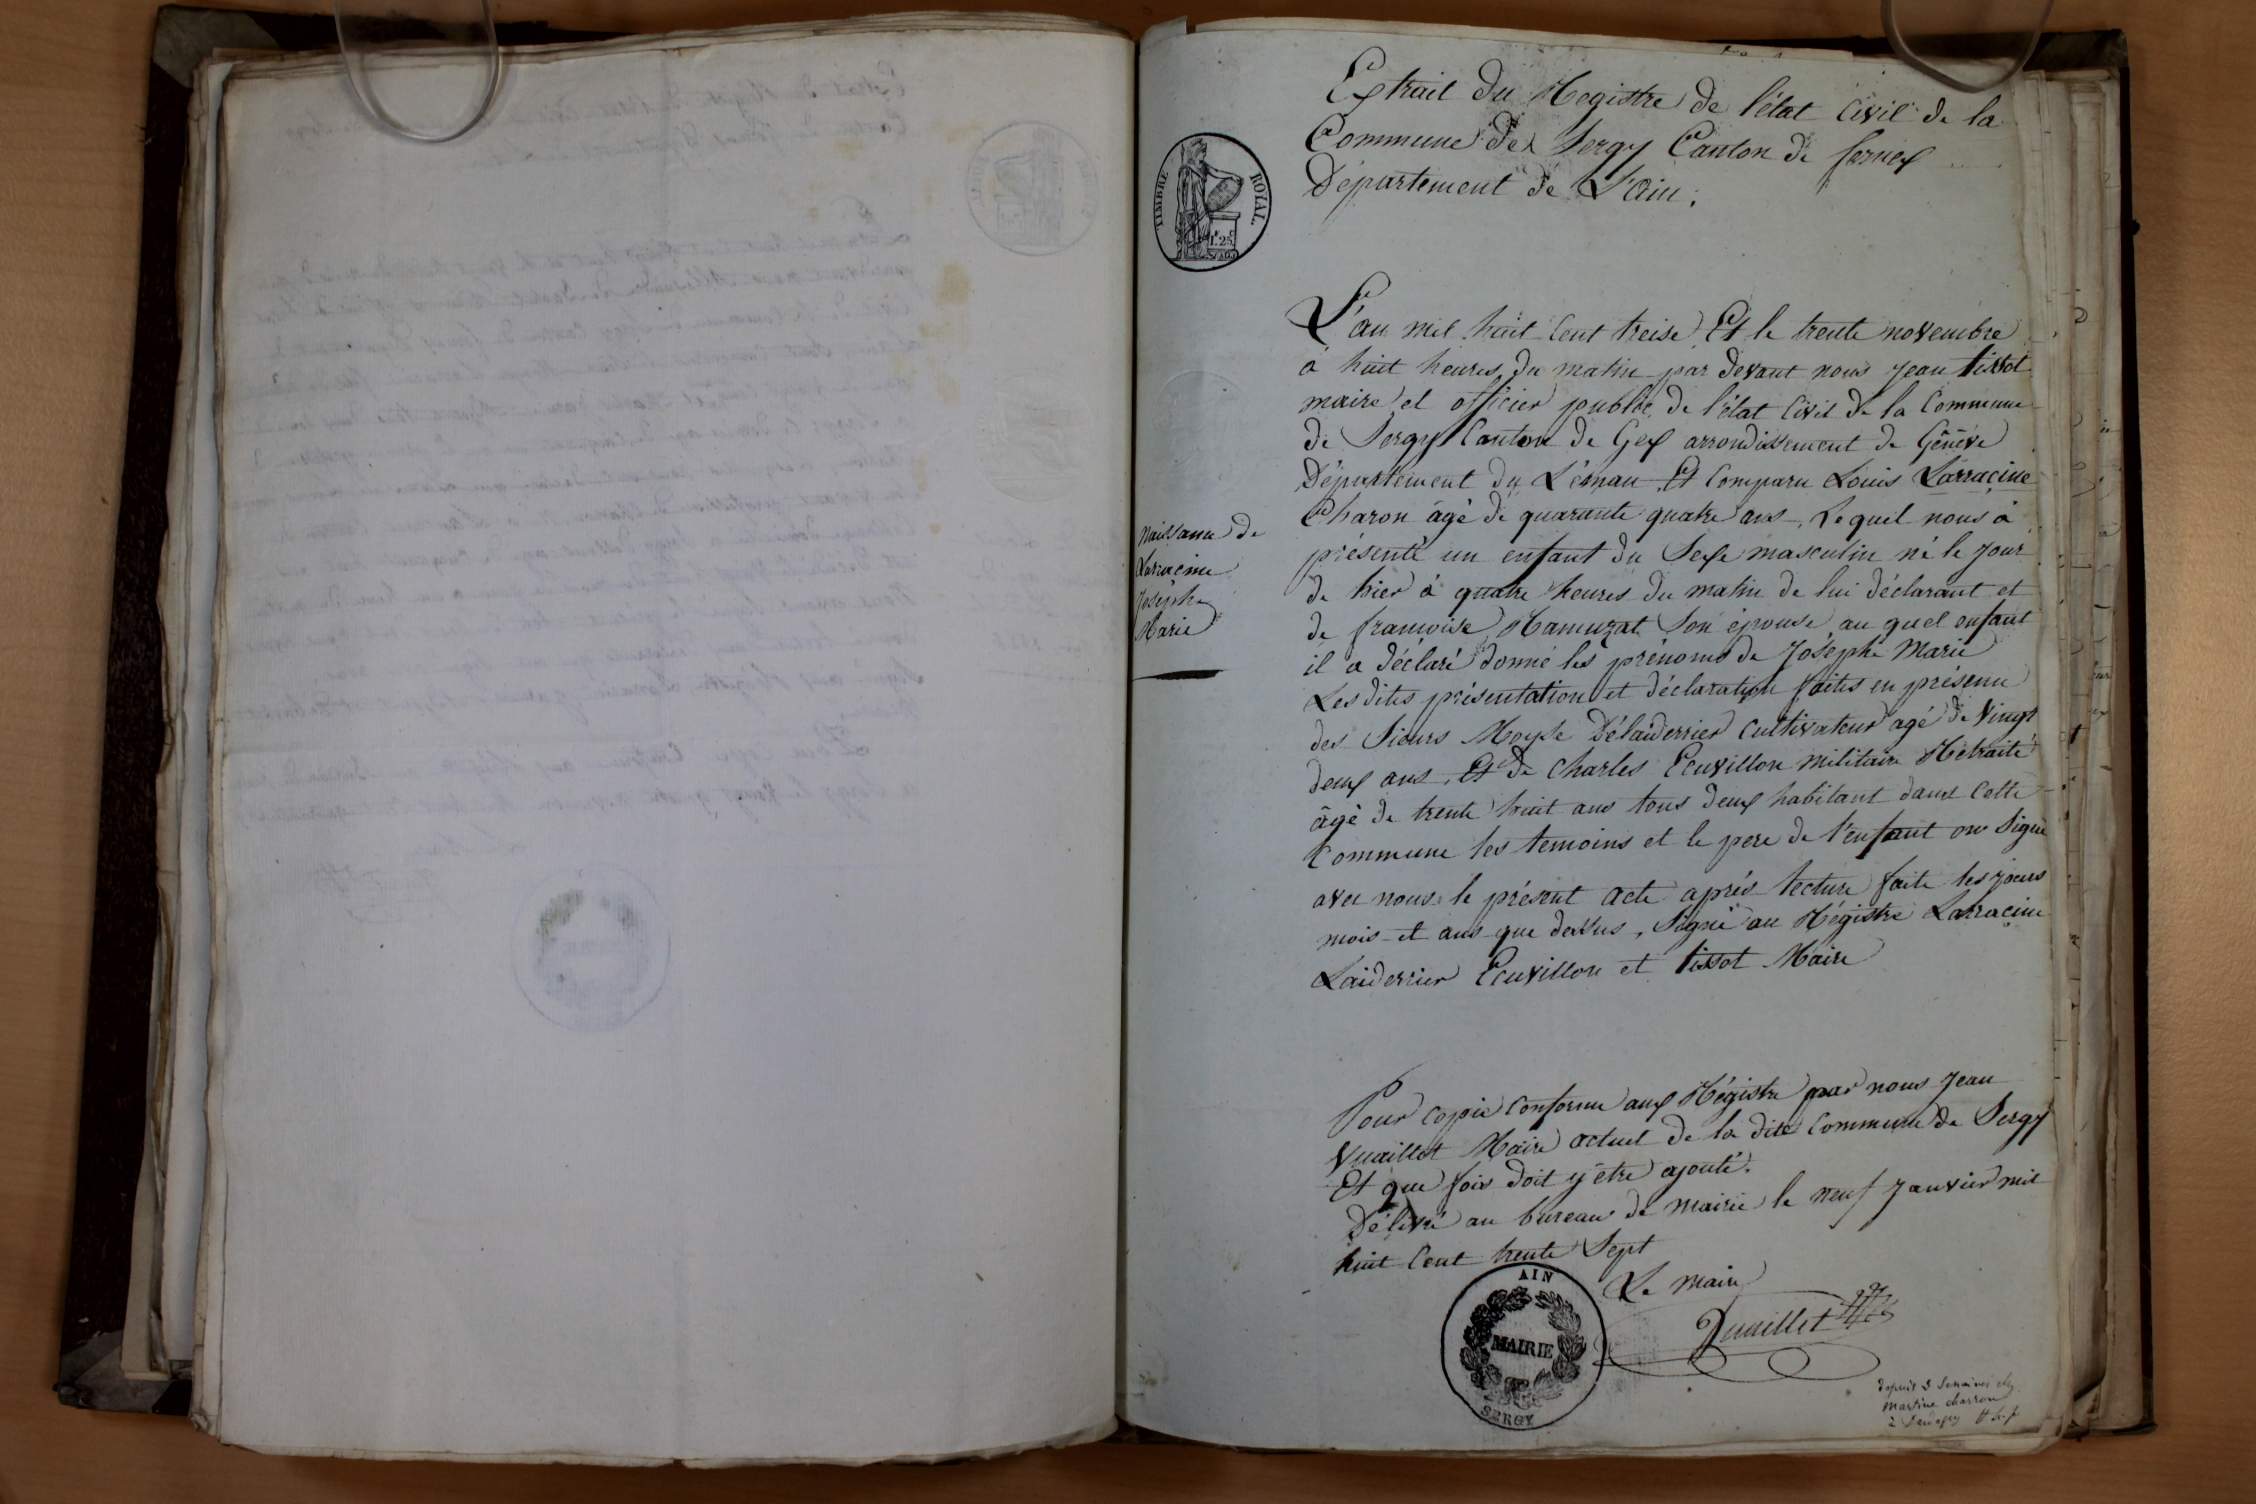 Extrait du Registre de l'état civil de la
Commune de Sergy Canton de fernex
Département de L'ain.
TIMBRE ROYAL
1f 25c
L'an mil huit cent treise Et le trente novembre
à huit heures du matin par devant nous jean tissot
maire et officier public de l'état Civil de la Commune
de Sergy Canton de Gex arrondissement de Génève
Département du Léman Et Comparu Louis Larracine
Charon âgé de quarante quatre ans, Lequel nous à
présenté un enfant du Sexe masculin né le jour
de hier à quatre heures du matin de lui déclarant et
de francoise Mamuzat Son épouse au quel enfant
il a déclaré donné les prénoms de Joseph Marie
Les dites présentation et déclaration faites en présence
des Sieurs Moyse Délaiderrier Cultivateur agé de Vingt
deux ans, Et de Charles Ecuvillon militaire Retraité
âgé de trente huit ans tous deux habitant dans Cette
Commune les temoins et le pere de l'enfant on Signé
avec nous le présent acte aprés lecture faite les jours
mois et ans que dessus, Signé au Régistre Larracine
Laiderrier Ecuvillon et tissot Maire
Naissance de
Larracine
Joseph
Marie
Pour copie Conforme aux Régistre par nous Jean
Vuaillet Maire actuel de la dite Commune de Sergy
Et que foix doit y être ajouté.
Délivré au bureau de mairie le neuf Janvier mil
huit Cent trente Sept
Le maire
Vuaillet
AIN
MAIRIE
SERGY
depuis 3 Semaines chez
Martine charron